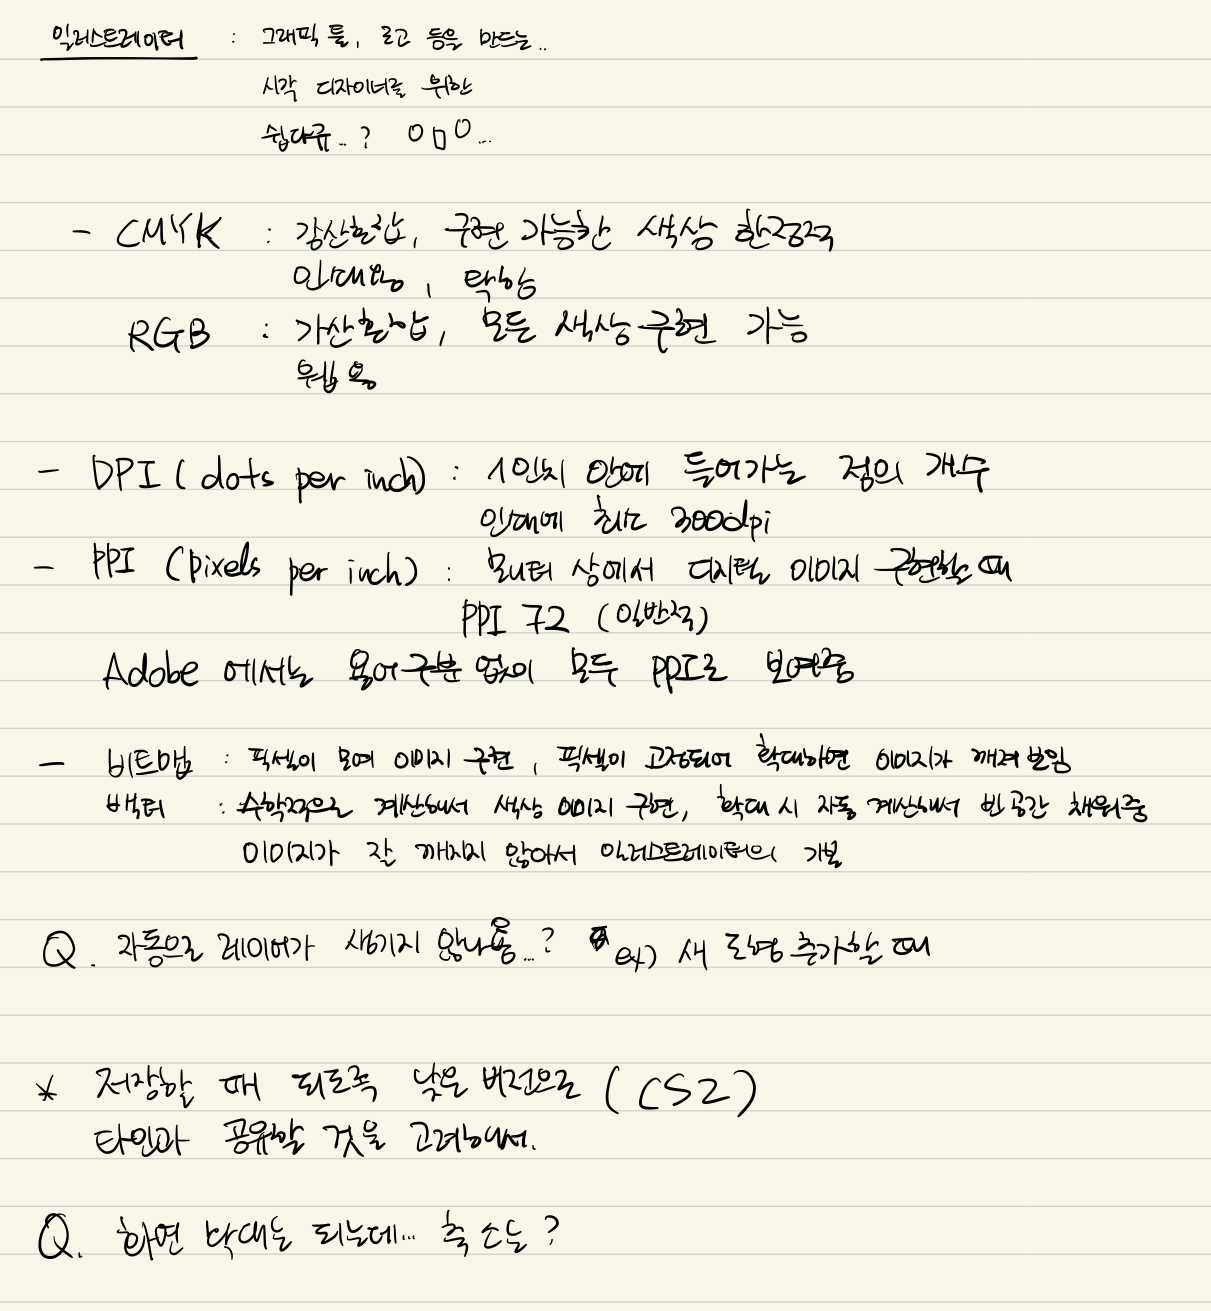 일러스트레이터 : 그래픽 툴, 로고 등을 만드는..
시각 디자이너를 위한
쉽다규...? ㅇㅁㅇ...
- CMYK : 감산혼합, 구현 가능한 색상 한정적
인쇄용, 탁함
RGB : 가산혼합, 모든 색상 구현 가능
웹용
- DPI (dots per inch) : 1인치 안에 들어가는 점의 개수
인쇄에 최소 300dpi
- PPI (pixels per inch) : 모니터 상에서 디지털 이미지 구현할 때
PPI 72 (일반적)
Adobe 에서는 용어구분 없이 모두 PPI로 보여줌
- 비트맵 : 픽셀이 모여 이미지 구현, 픽셀이 고정되어 확대하면 이미지가 깨져 보임
벡터 : 수학적으로 계산해서 색상 이미지 구현, 확대 시 자동 계산해서 빈 공간 채워줌
이미지가 잘 깨지지 않아서 일러스트레이터의 기본
Q. 자동으로 레이어가 생기지 않나용...? ex) 새 도형 추가할 때
* 저장할 때 되도록 낮은 버전으로 (CS2)
타인과 공유할 것을 고려해서.
Q. 화면 확대는 되는데... 축소는?